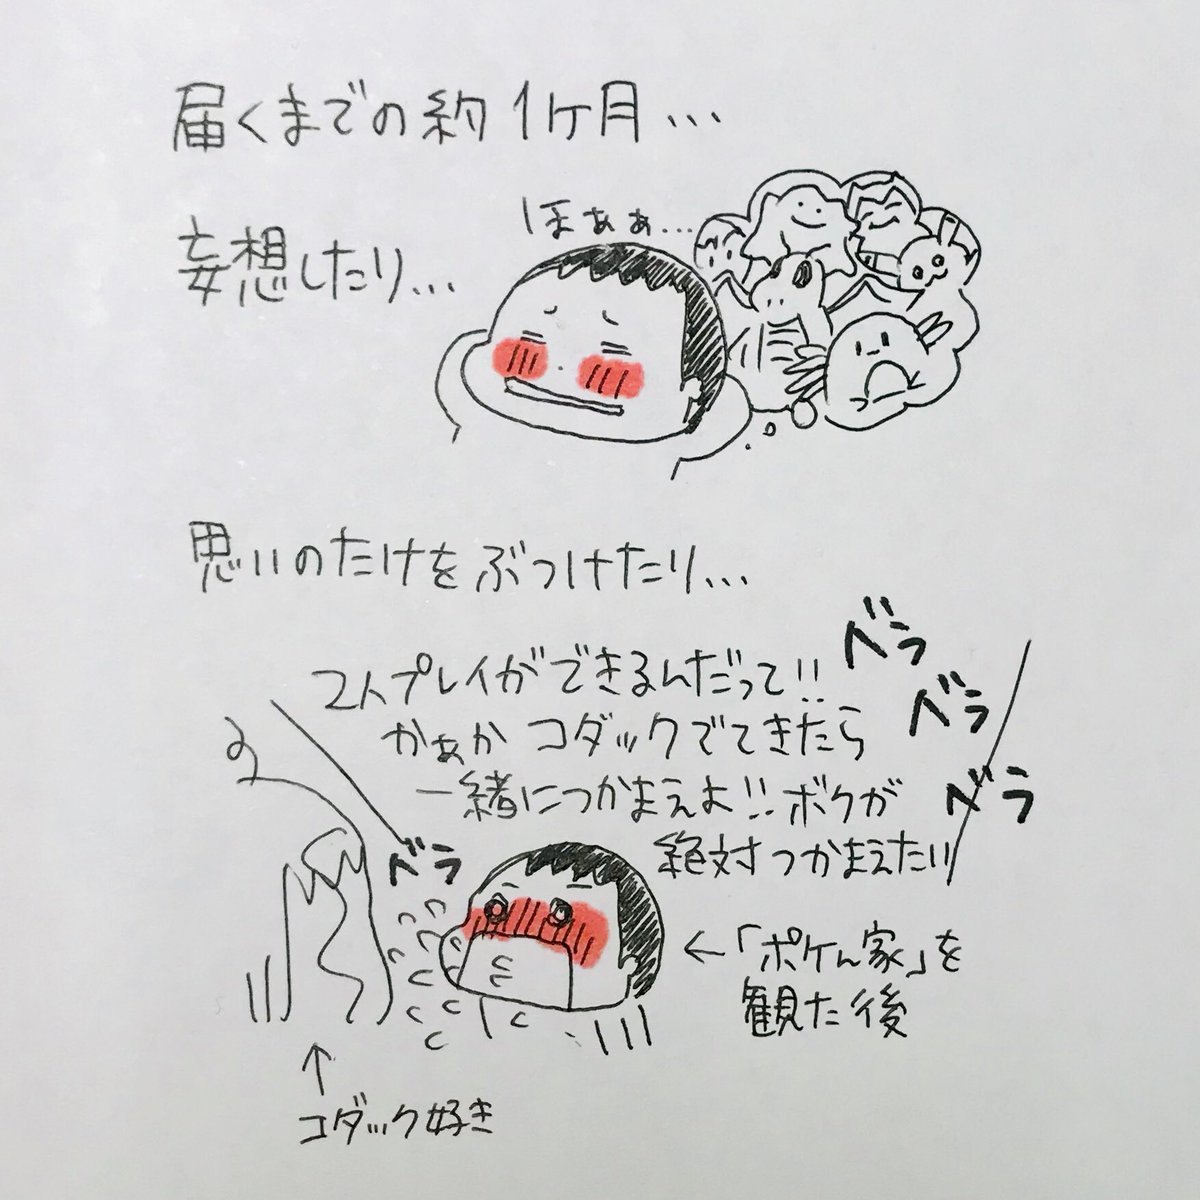 届くまでの約1ヶ月…
妄想したり…
ほぁぁぁ…
思いのたけをぶつけたり…
2人プレイができるんだって!!
かぁか コダックでてきたら
一緒につかまえよ!!ボクが
絶対つかまえたい
ベラ
ベラ
ベラ
ベラ
←「ポケん家」を
観た後
↑
コダック好き